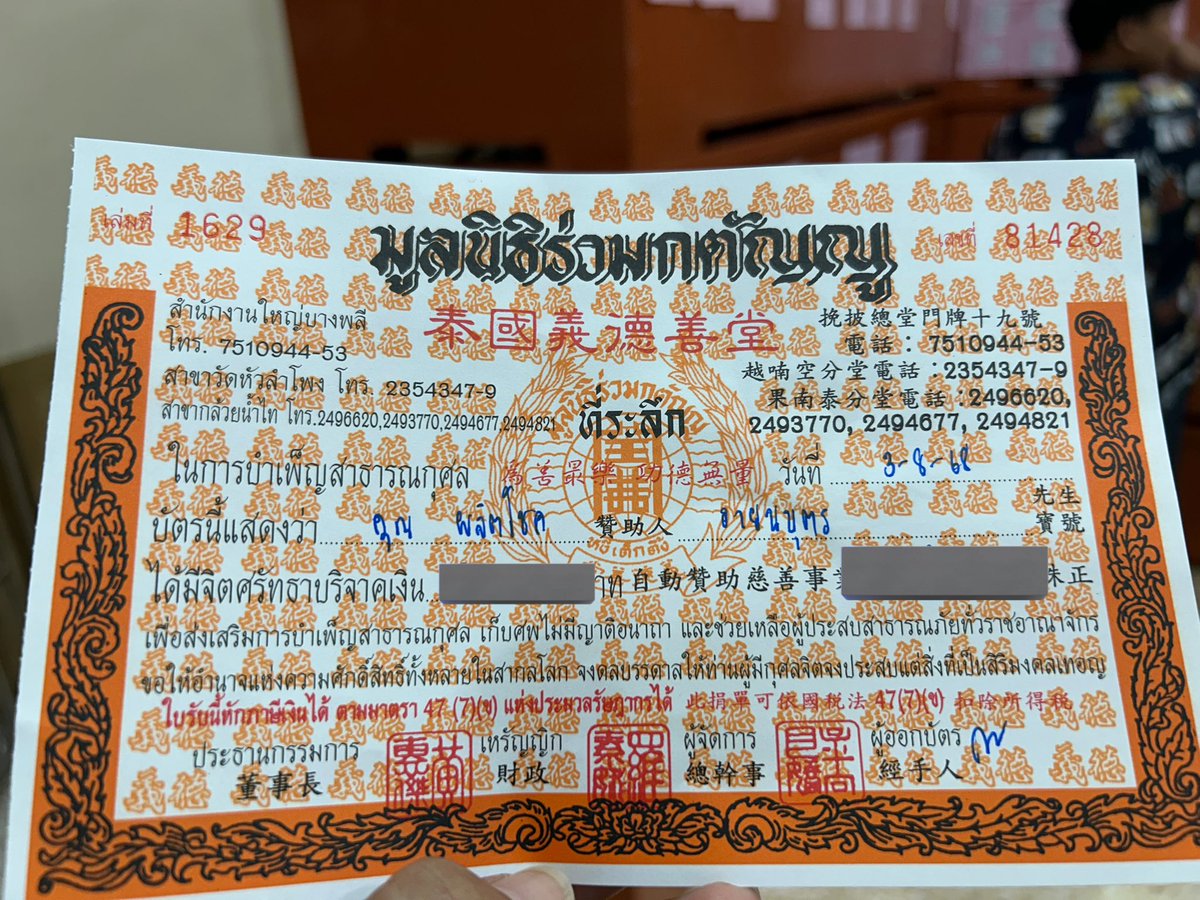 เล่มที่ 1629
มูลนิธิร่วมกตัญญู
เลขที่ 81428
สำนักงานใหญ่บางพลี
โทร. 7510944-53
สาขาวัดหัวลำโพง โทร. 2354347-9
สาขากล้วยน้ำไท โทร.2496620,2493770,2494677,2494821
泰國義德善堂
ที่ระลึก
挽披總堂門牌十九號
電話：7510944-53
越喃空分堂電話：2354347-9
果南泰分堂電話：2496620,
2493770, 2494677, 2494821
ในการบำเพ็ญสาธารณกุศล 為善最樂 功德無量 วันที่ 3-8-68
บัตรนี้แสดงว่า คุณ ผลิตโชค 贊助人 อายนบุตร 先生 寶號
ได้มีจิตศรัทธาบริจาคเงิน 自動贊助慈善事 朱正
เพื่อส่งเสริมการบำเพ็ญสาธารณกุศล เก็บศพไม่มีญาติอนาถา และช่วยเหลือผู้ประสบสาธารณภัยทั่วราชอาณาจักร
ขอให้อำนาจแห่งความศักดิ์สิทธิ์ทั้งหลายในสากลโลก จงดลบรรดาลให้ท่านผู้มีกุศลจิตจงประสบแต่สิ่งที่เป็นสิริมงคลเทอญ
ใบรับนี้หักภาษีเงินได้ ตามมาตรา 47 (7)(ข) แห่งประมวลรัษฎากรได้ 此捐單可依國税法 47(7)(ข) 扣除所得税
ประธานกรรมการ เหรัญญิก ผู้จัดการ ผู้ออกบัตร
董事長 財政 總幹事 經手人